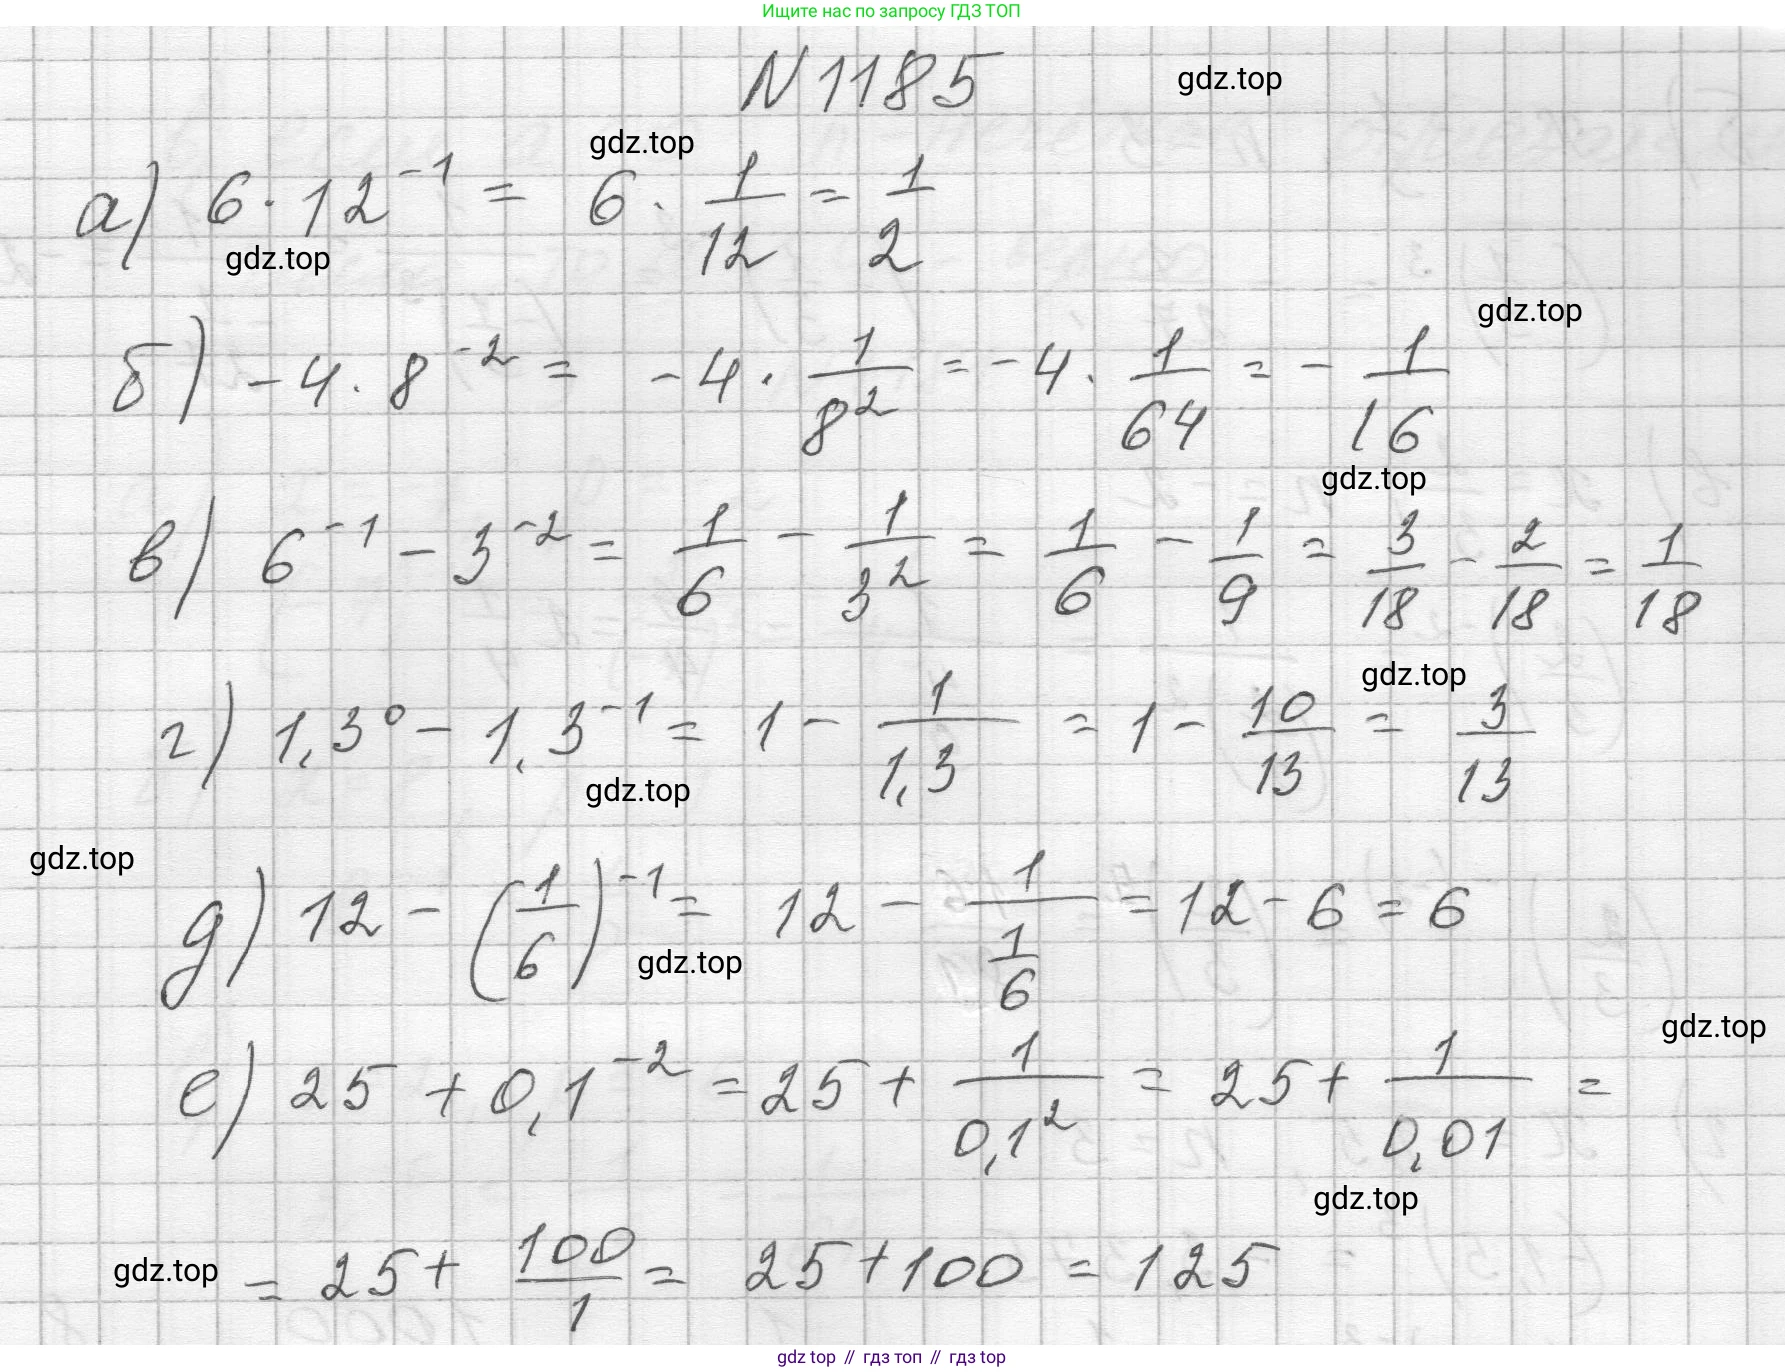 Ищите нас по запросу ГДЗ ТОП
N 1185
gdz.top
gdz.top
а) 6 · 12⁻¹ = 6 · 1/12 = 1/2
gdz.top
gdz.top
б) -4 · 8⁻² = -4 · 1/8² = -4 · 1/64 = - 1/16
gdz.top
в) 6⁻¹ - 3⁻² = 1/6 - 1/3² = 1/6 - 1/9 = 3/18 - 2/18 = 1/18
gdz.top
г) 1,3⁰ - 1,3⁻¹ = 1 - 1/1,3 = 1 - 10/13 = 3/13
gdz.top
gdz.top
д) 12 - (1/6)⁻¹ = 12 - 1/(1/6) = 12 - 6 = 6
gdz.top
gdz.top
е) 25 + 0,1⁻² = 25 + 1/0,1² = 25 + 1/0,01 =
gdz.top
gdz.top
= 25 + 100/1 = 25 + 100 = 125
gdz top // гдз топ // гдз top